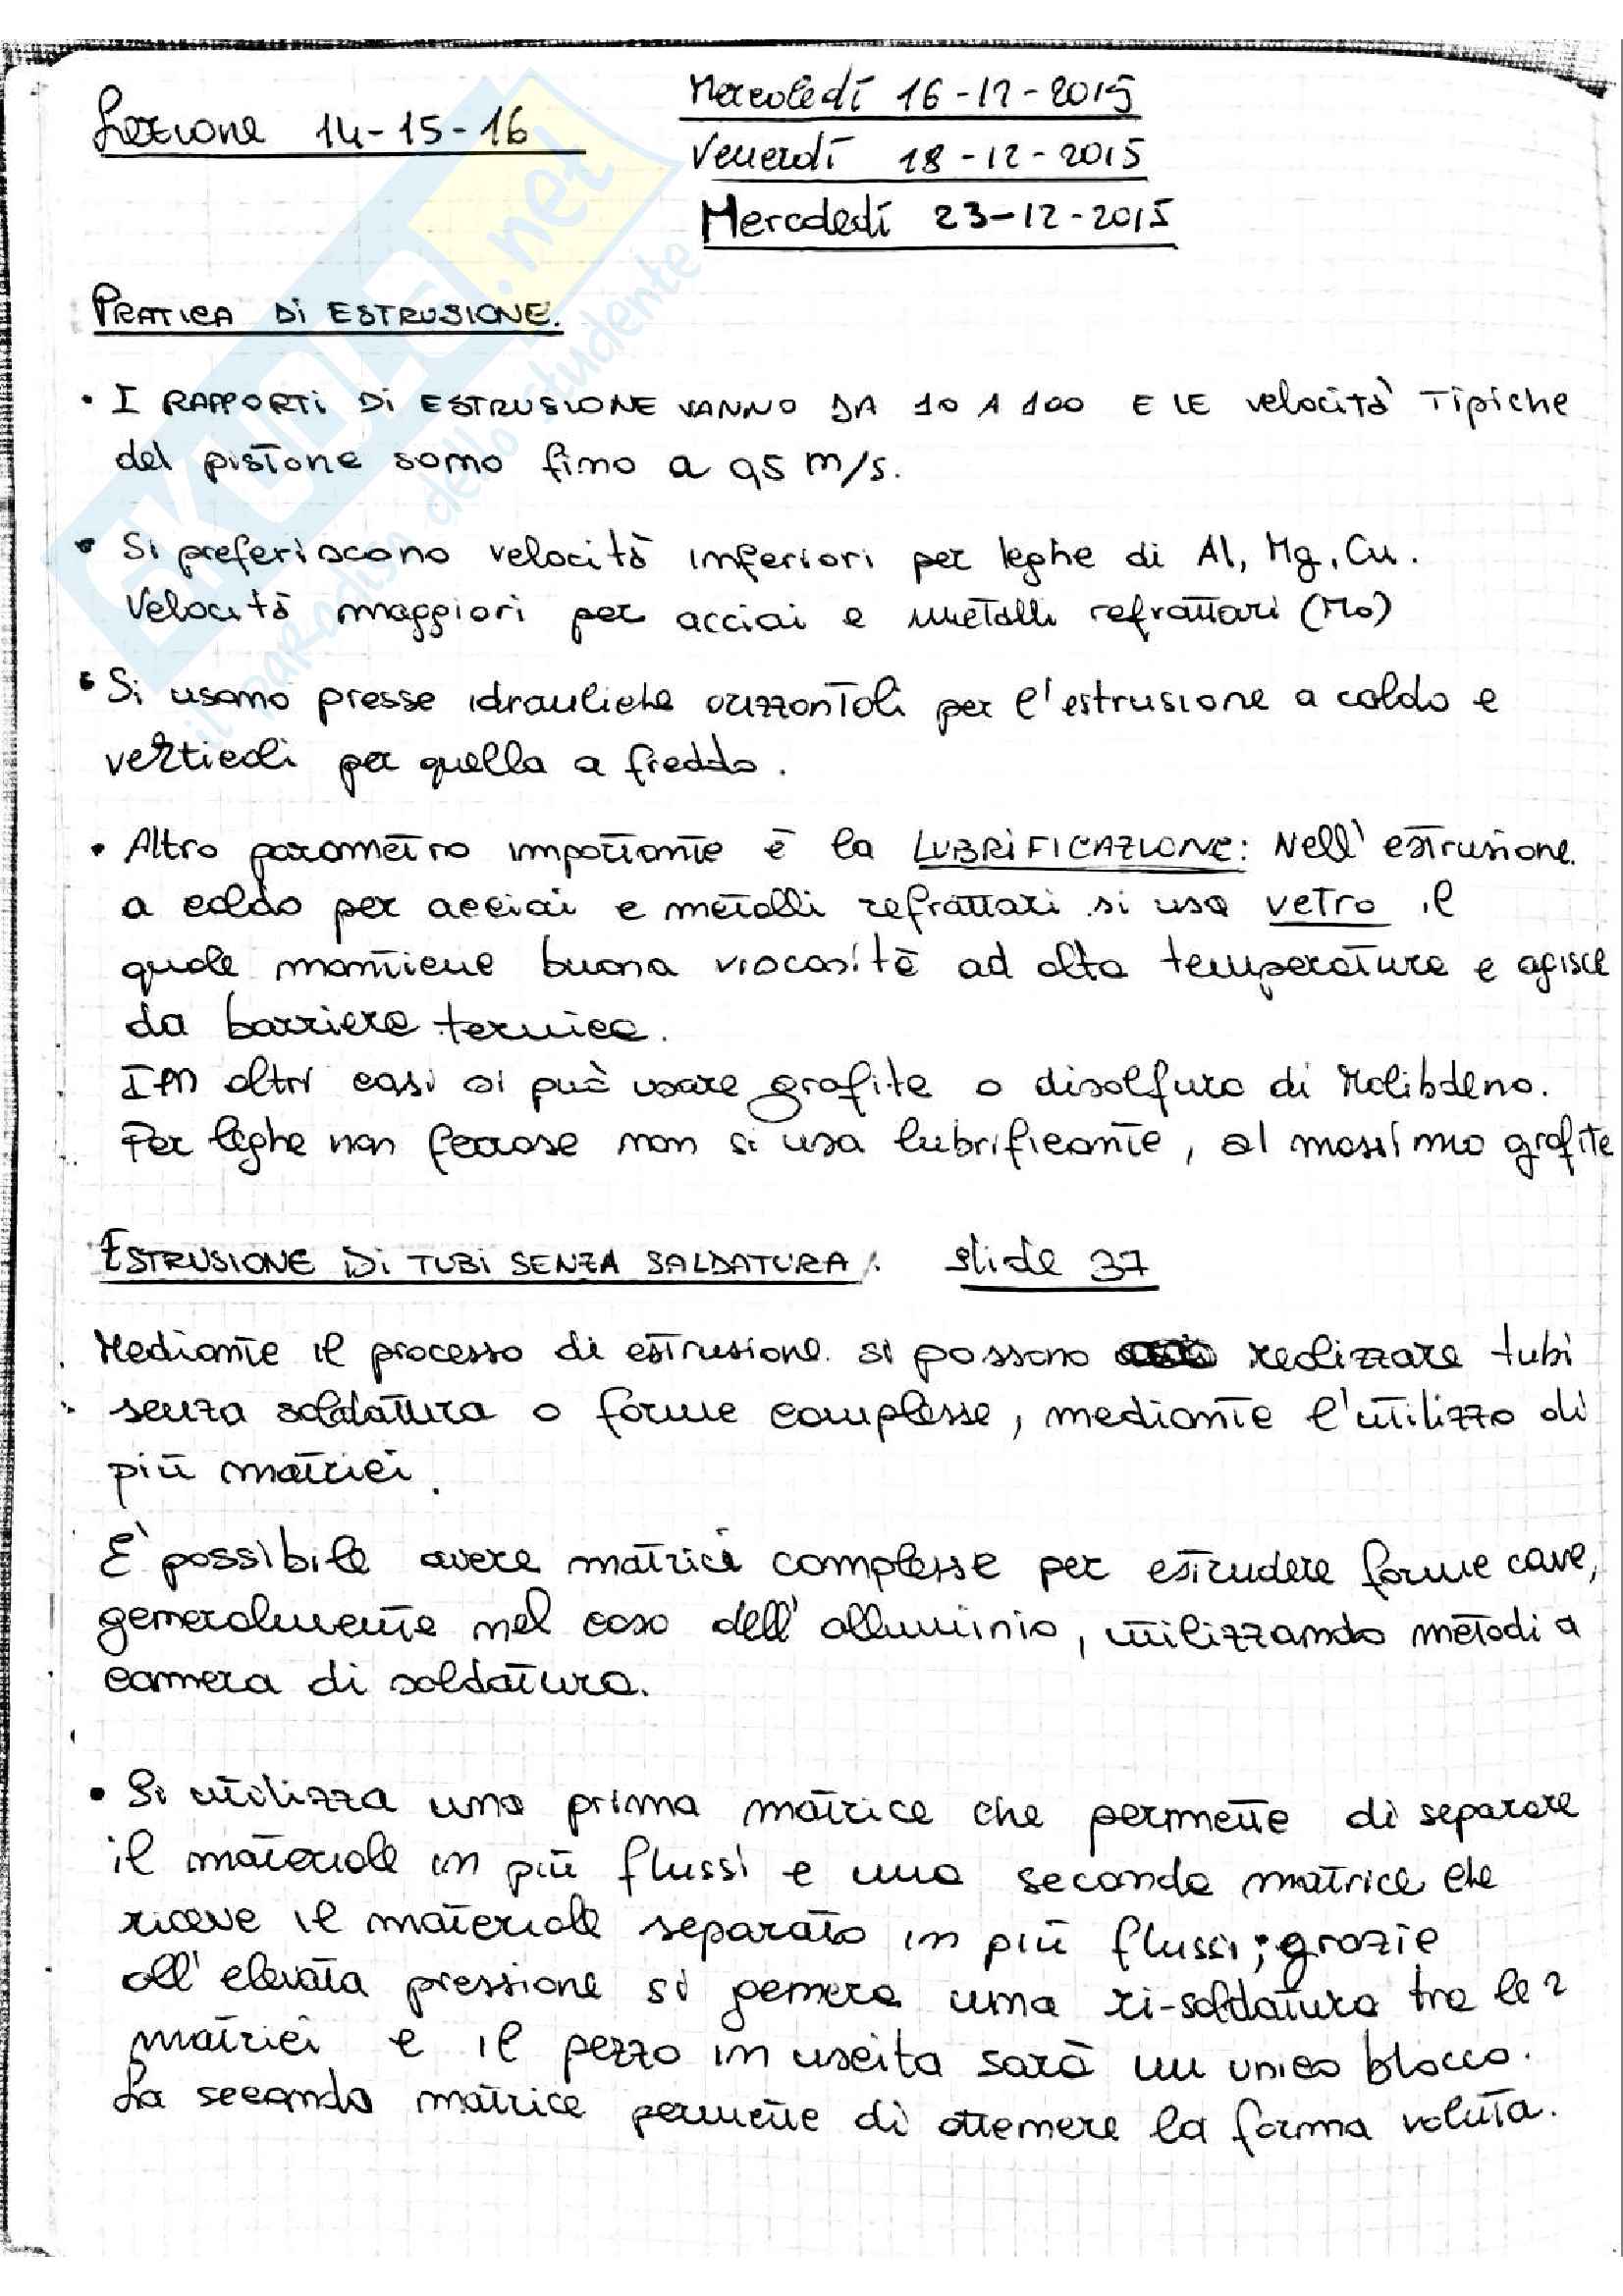 Lezione 14-15-16
Mercoledì 16-12-2015
Venerdì 18-12-2015
Mercoledì 23-12-2015
SKUOLA.net
il paradiso dello studente
PRATICA Di ESTRUSIONE.
• I RAPPORTi Di ESTRUSIONE VANNO DA 10 A 100 E LE velocità Tipiche
del pistone sono fino a 0,5 m/s.
• Si preferiscono velocità inferiori per leghe di Al, Mg, Cu.
Velocità maggiori per acciai e metalli refrattari (Mo)
• Si usano presse idrauliche orizzontali per l'estrusione a caldo e
verticali per quella a freddo.
• Altro parametro importante è la LUBRiFICAZIONE: Nell' estrusione
a caldo per acciai e metalli refrattari si usa vetro il
quale mantiene buona viscosità ad alta temperatura e agisce
da barriera termica.
In altri casi si può usare grafite o disolfuro di Molibdeno.
Per leghe non ferrose non si usa lubrificante, al massimo grafite
ESTRUSIONE Di TUBi SENZA SALDATURA: slide 37
Mediante il processo di estrusione si possono realizzare tubi
senza saldatura o forme complesse, mediante l'utilizzo di
più matrici.
E' possibile avere matrici complesse per estrudere forme cave,
generalmente nel caso dell' alluminio, utilizzando metodi a
camera di saldatura.
• Si utilizza una prima matrice che permette di separare
il materiale in più flussi e una seconda matrice che
riceve il materiale separato in più flussi; grazie
all' elevata pressione si genera una ri-saldatura tra le 2
matrici e il pezzo in uscita sarà un unico blocco.
La seconda matrice permette di ottenere la forma voluta.